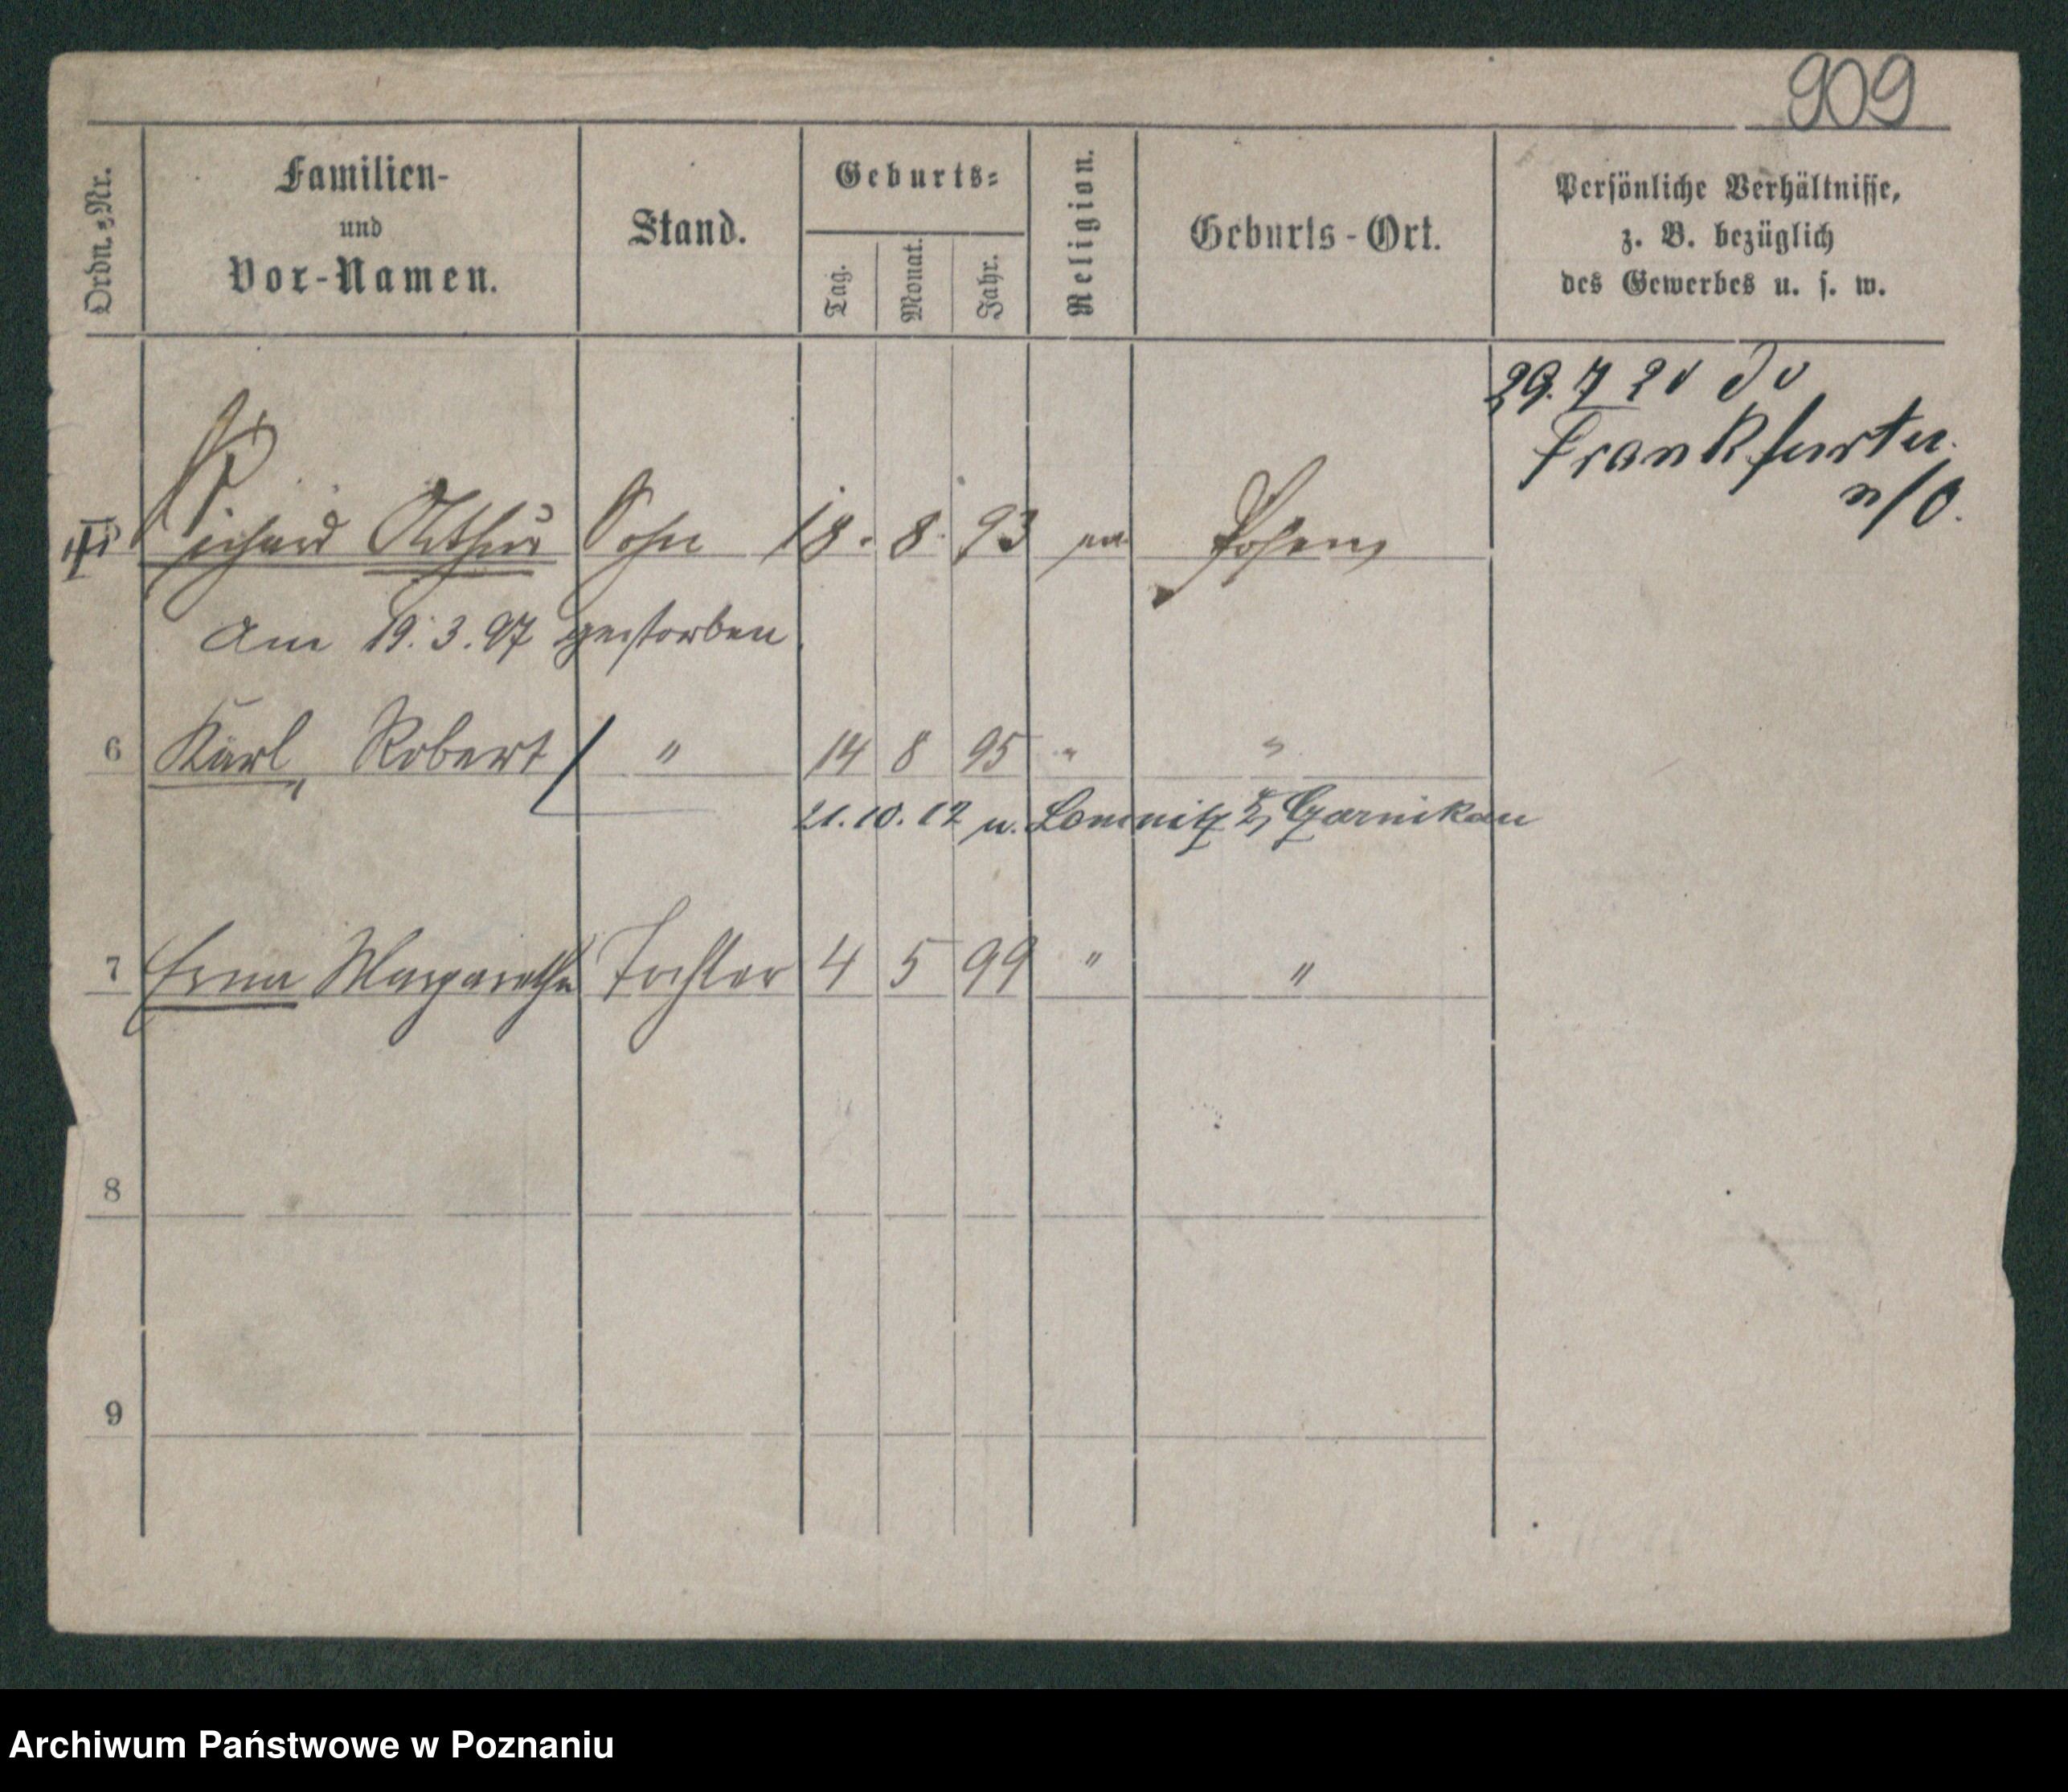 909
Ordn.-Nr.
Familien-
und
Vor-Namen.
Stand.
Geburts-
Tag.
Monat.
Jahr.
Religion.
Geburts-Ort.
Persönliche Verhältnisse,
z. B. bezüglich
des Gewerbes u. s. w.
29. 7 21
Frankfurt
/O.
Richard Arthur Sohn 18. 8. 93 ev. Posen
Am 19. 3. 97 gestorben.
6 Karl Robert " 14 8 95 " "
21. 10. 12 n. Lomnitz Czarnikau
7 Erna Margarethe Tochter 4 5 99 " "
8
9
Archiwum Państwowe w Poznaniu